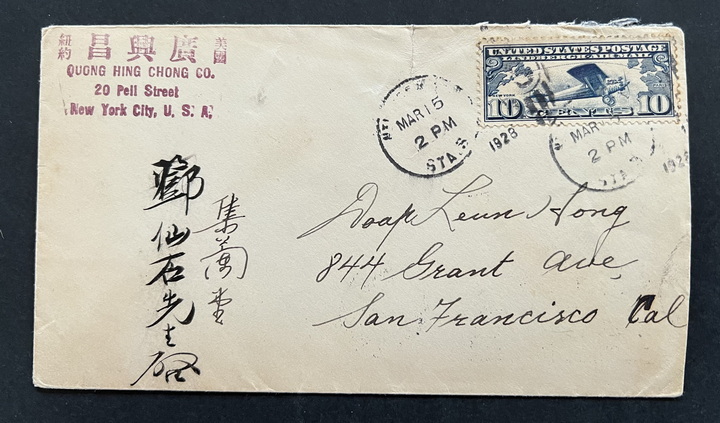 美國
廣興昌
紐約
QUONG HING CHONG CO.
20 Pell Street
New York City, U. S. A.
UNITED STATES POSTAGE
LINDBERGH AIR MAIL
10 CENTS 10
MAR 15
2 PM
STA.
1928
MAR
2 PM
STA.
1928
集萬堂
鄧仙石先生啟
Leun Hong
844 Grant Ave,
San Francisco Cal